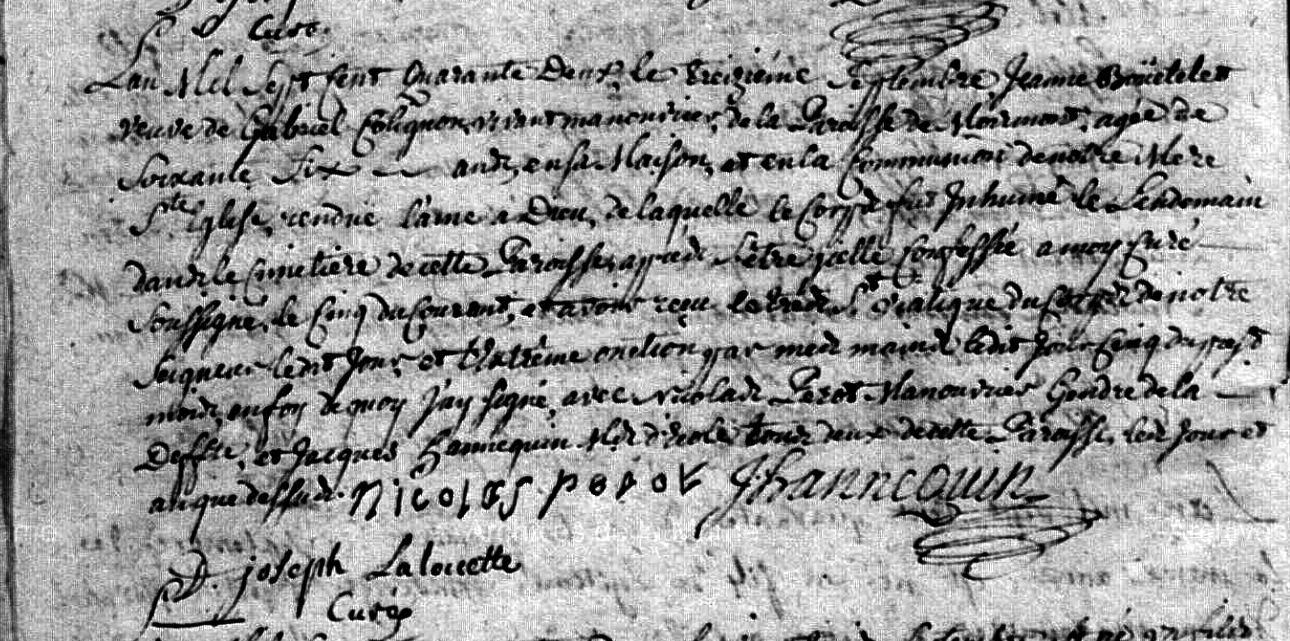 Curé
Lan Mil Sept Cent Quarante Deux, le treizième Septembre, Jeanne
veuve de Gabriel Colignon, vivant manouvrier, de la Paroisse de agée de
Soixante Six ans, en sa Maison, et en la Communion de notre Mere
Ste Eglise, rendue l'ame a Dieu, de laquelle le Corps fut Inhumé le Lendemain
dans le Cimetiere de cette Paroisse, après s'être icelle Confessée a moy Curé
Soussigné, le Cinq du Courant, et avoir reçu le St Viatique du Corps de notre
Seigneur ledit Jour, et l'extrême onction par mes mains ledit Jour Cinq du
mois, en foy de quoy J'ay signé, avec Nicolas Perot Manouvrier Gendre de la
Deffte, et Jacques Hannequin Mtr d'ecole tous deux de cette Paroisse, les Jour et
an que dessus. Nicolas perot Jhannequin
D. joseph Lalouette
Curé